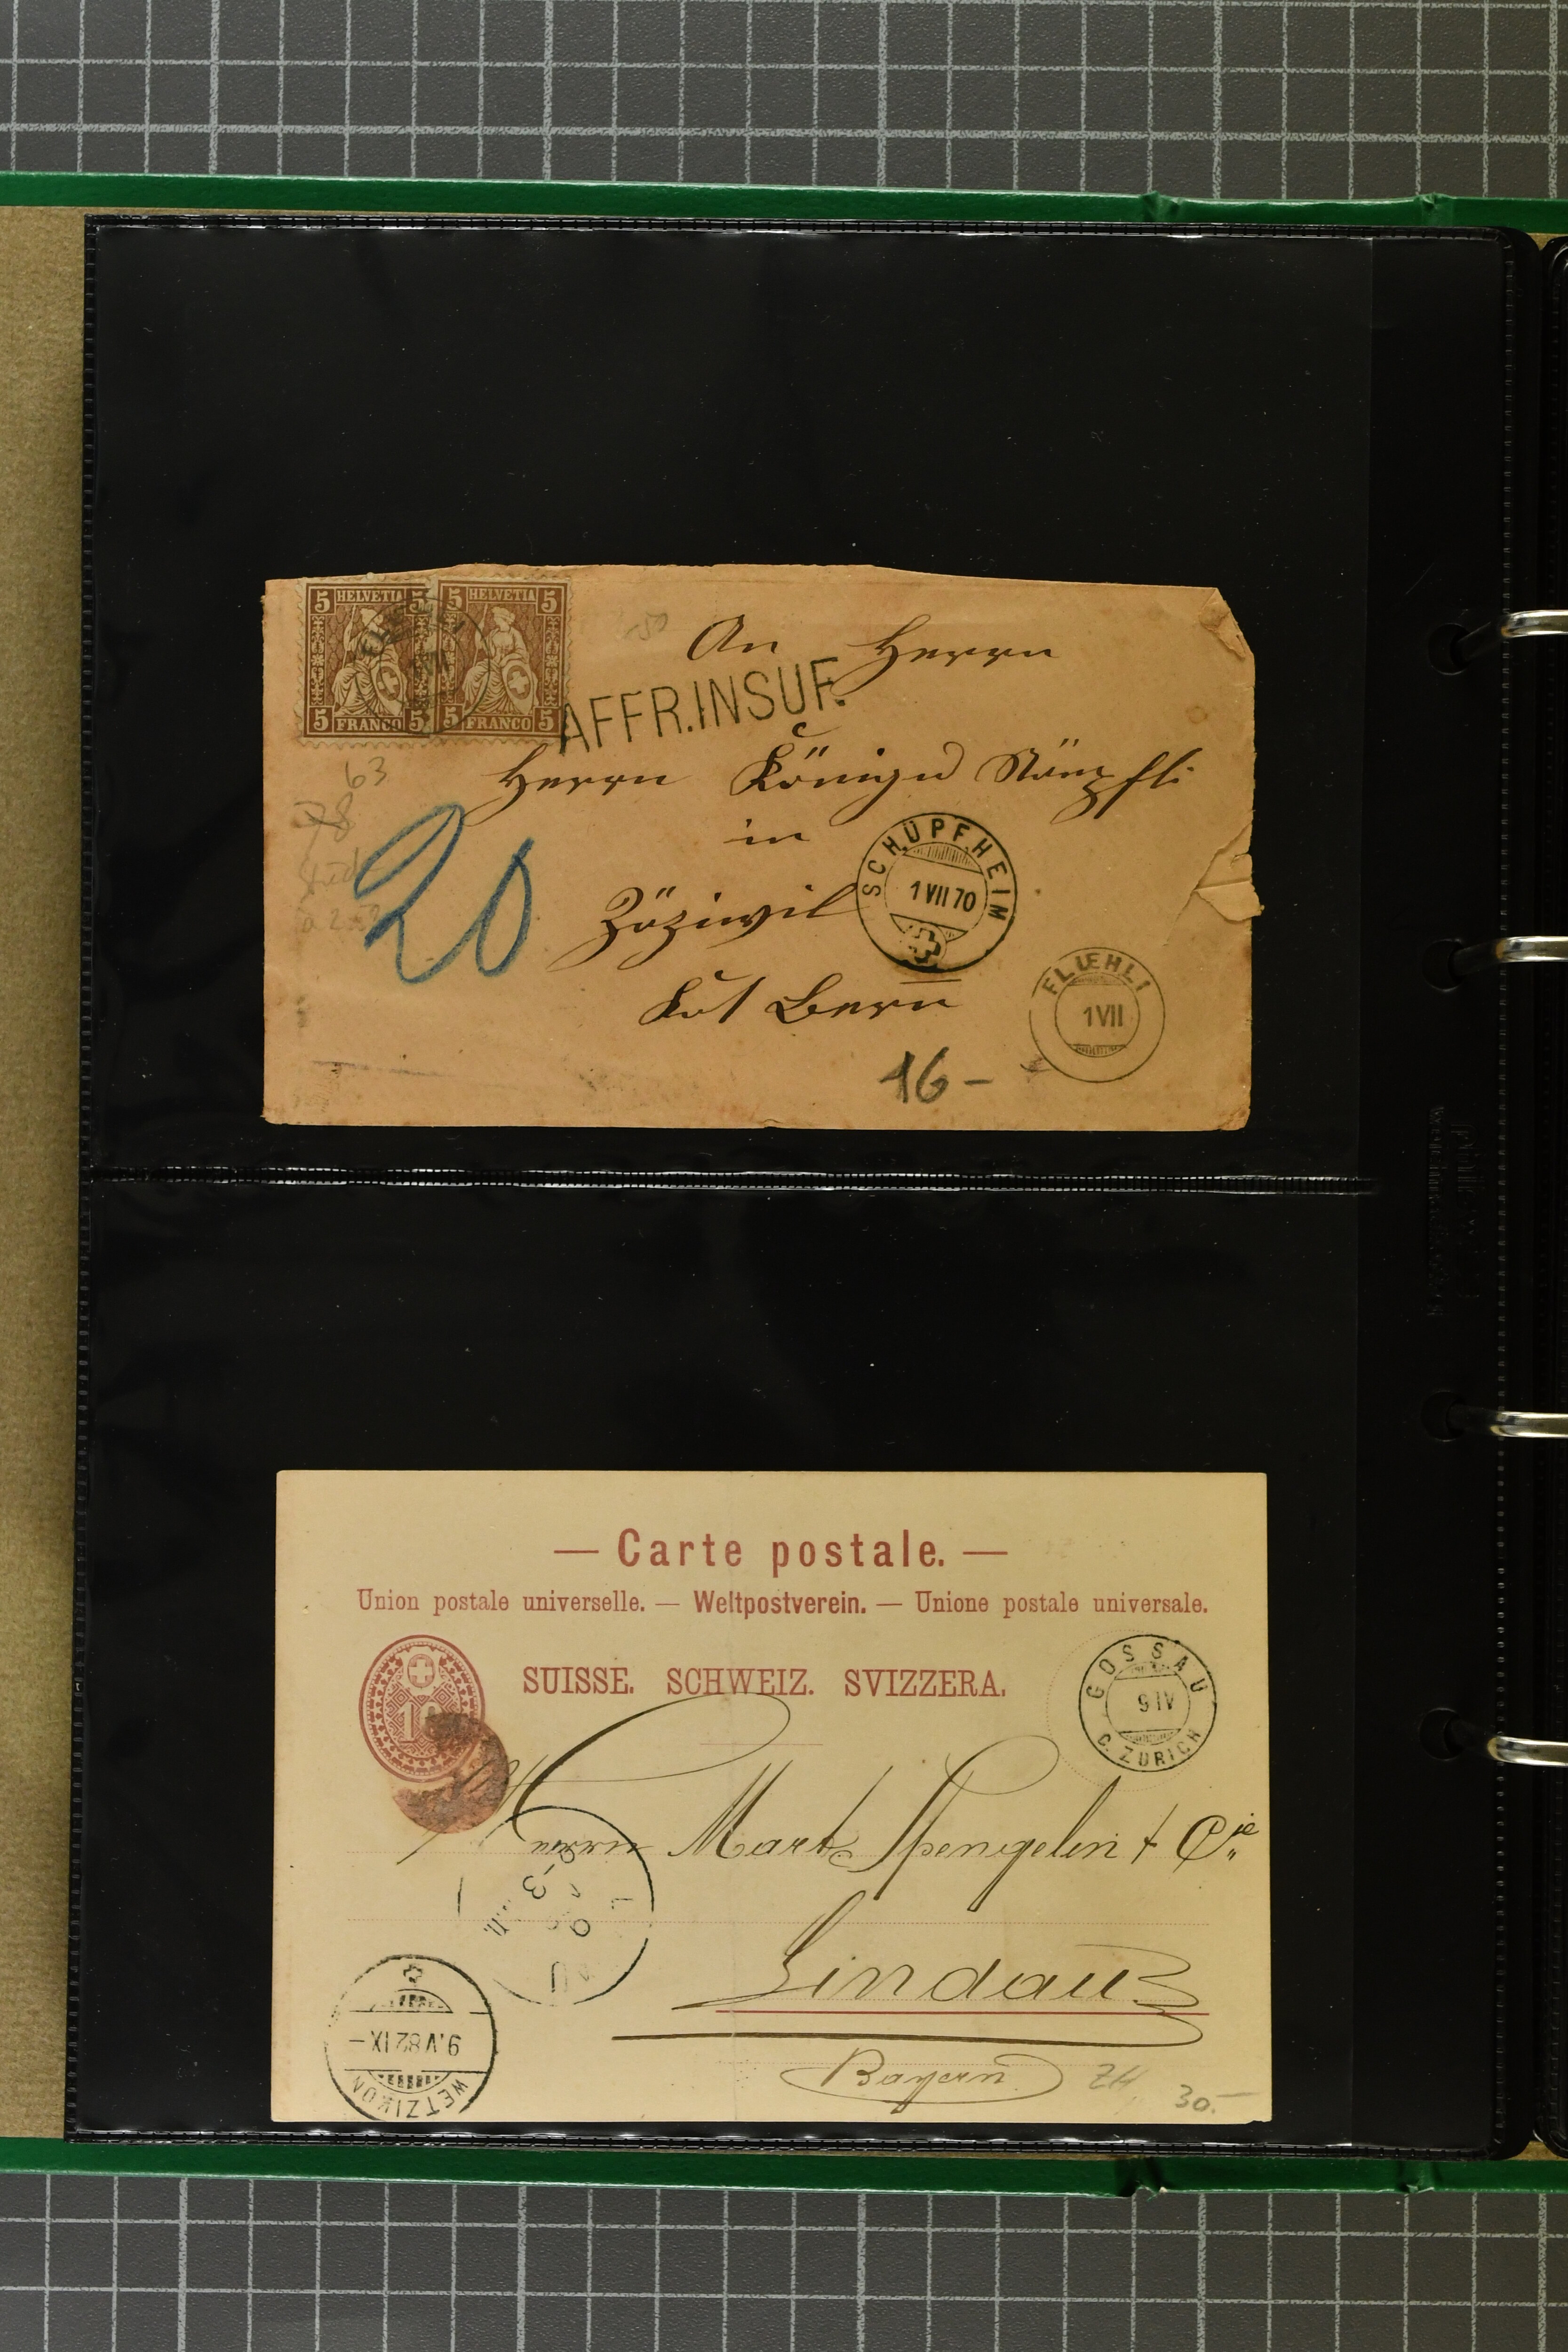 5 HELVETIA 5
5 FRANCO 5
5 HELVETIA 5
5 FRANCO 5
An Herrn
AFFR.INSUF.
Herrn
in
63
78
20
SCHÜPFHEIM
1 VII 70
Zäziwil
Kt Bern
FLUEHLI
1 VII
16-
— Carte postale. —
Union postale universelle. — Weltpostverein. — Unione postale universale.
SUISSE. SCHWEIZ. SVIZZERA.
10
GOSSAU
9 IV
C. ZÜRICH
Herrn Mart. Spengelin & Cie
Lindau
Bayern
WETZIKON
9.IV 82 IX-
ZH
30.-